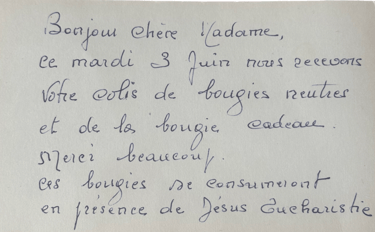 Bonjour chère Madame,
ce mardi 3 Juin nous recevons
votre colis de bougies neutres
et de la bougie cadeau.
Merci beaucoup.
ces bougies se consumeront
en présence de Jésus Eucharistie